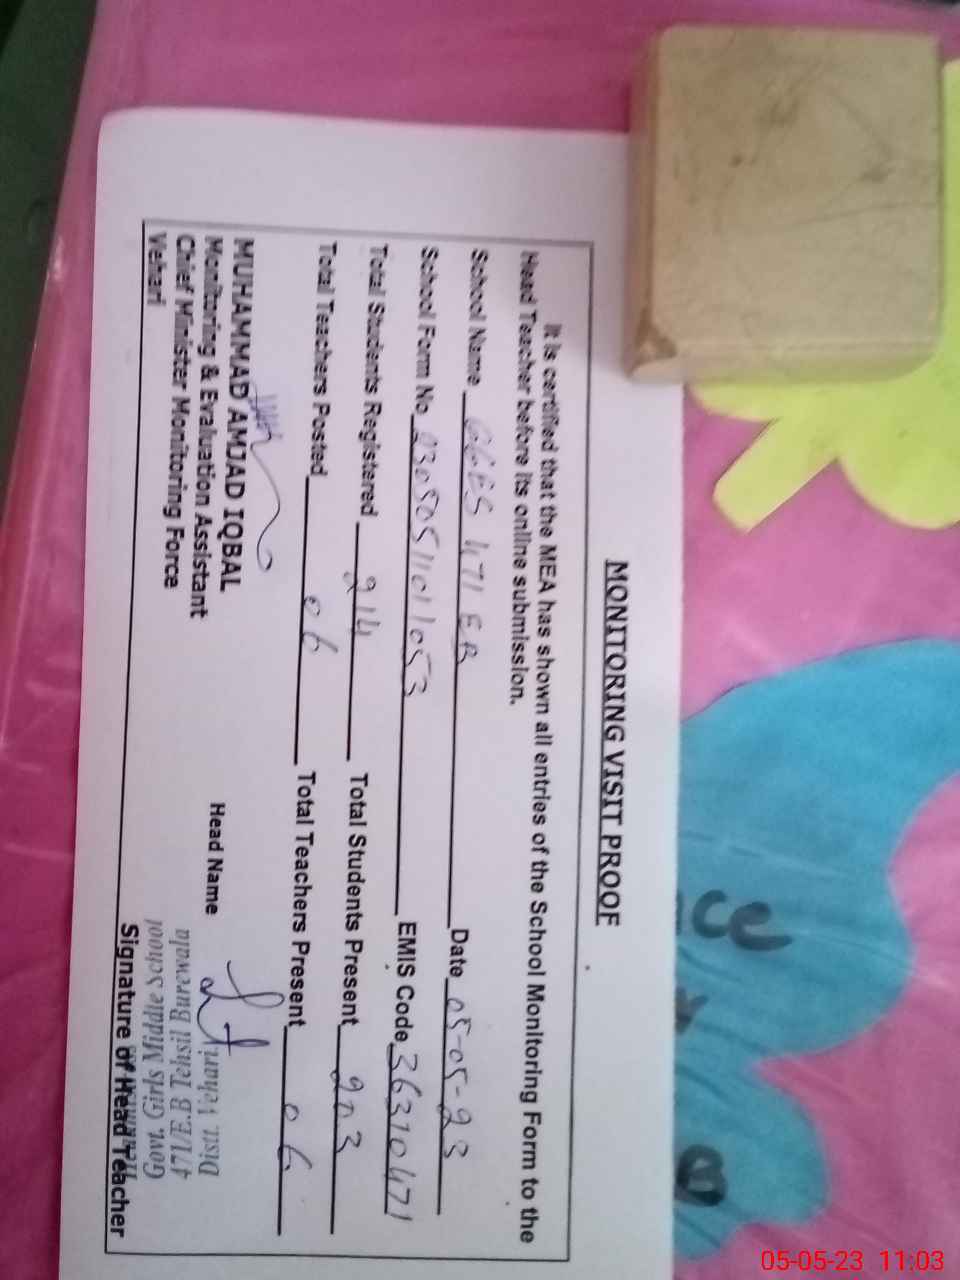 MONITORING VISIT PROOF
It is certified that the MEA has shown all entries of the School Monitoring Form to the
Head Teacher before its online submission.
School Name GGES 471 EB Date 05-05-23
School Form No 23050511011053 EMIS Code 36310471
Total Students Registered 214 Total Students Present 203
Total Teachers Posted 06 Total Teachers Present 06
MUHAMMAD AMJAD IQBAL
Monitoring & Evaluation Assistant
Chief Minister Monitoring Force
Vehari
Head Name
Signature of Head Teacher
Govt. Girls Middle School
471/E.B Tehsil Burewala
Distt. Vehari
05-05-23 11:03